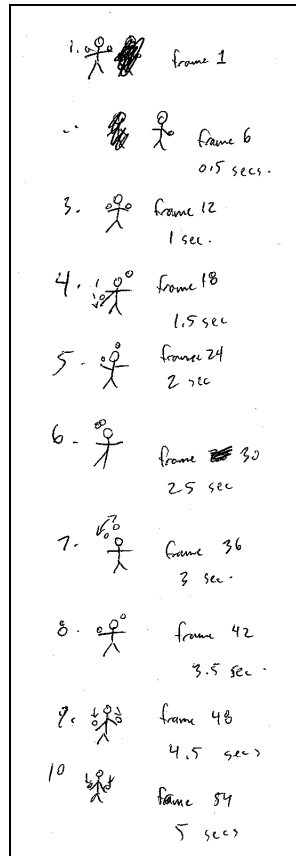 1. frame 1
frame 6
0.5 secs.
3. frame 12
1 sec.
4. frame 18
1.5 sec
5. frame 24
2 sec
6. frame 30
2.5 sec
7. frame 36
3 sec.
8. frame 42
3.5 sec.
9. frame 48
4.5 secs
10 frame 54
5 secs